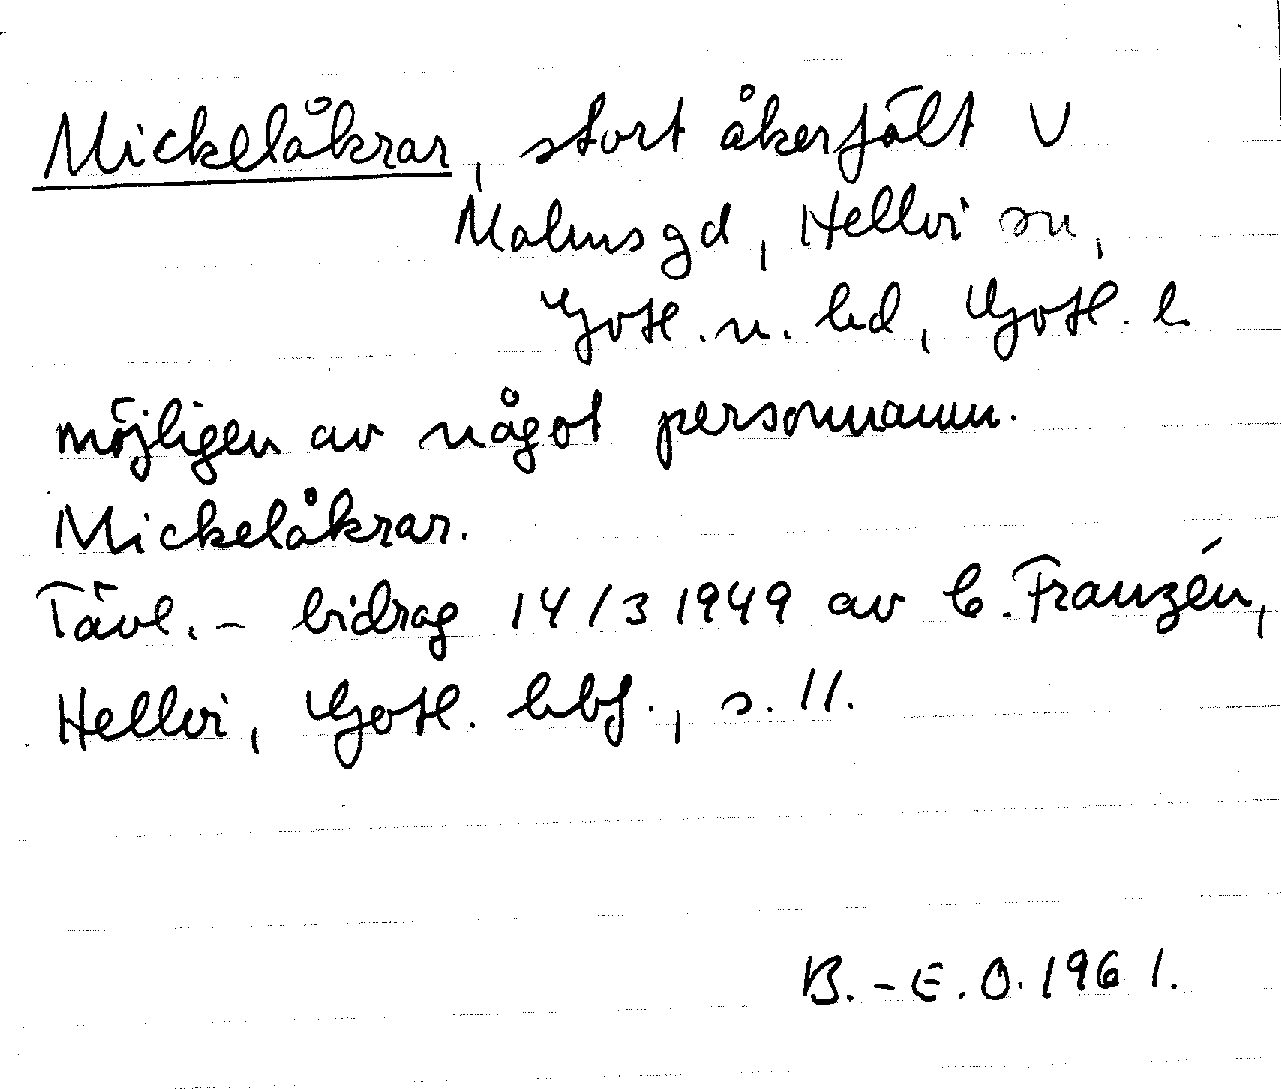 Mickelåkrar, stort åkerfält V
Malms gd, Hellvi sn,
Gotl. n. hd, Gotl. l.
möjligen av något personnamn.
Mickelåkrar.
Tävl. - bidrag 14/3 1949 av C. Franzén,
Hellvi, Gotl. hbf., s. 11.
B. - E. O. 1961.